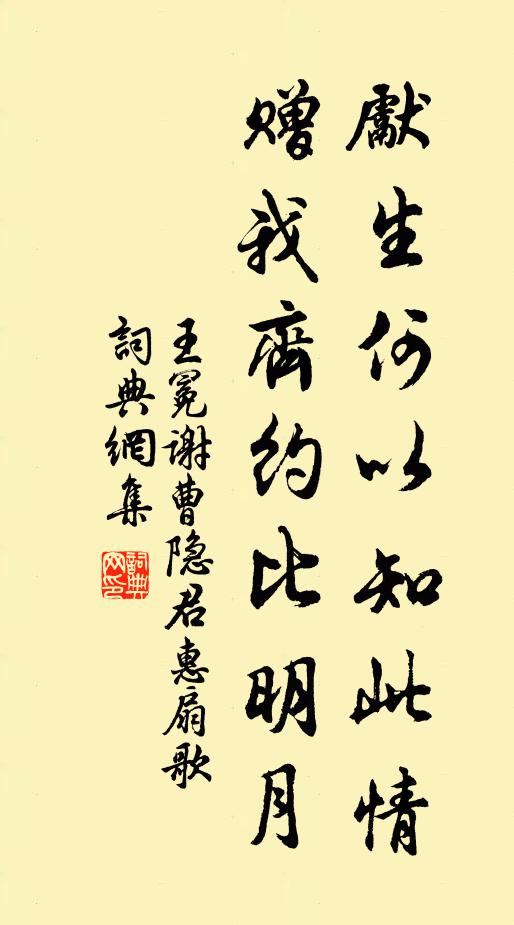 獻生何以知此情
贈我齊約比明月
王冕谢曹隐君惠扇歌
詞典網集
詞典网印